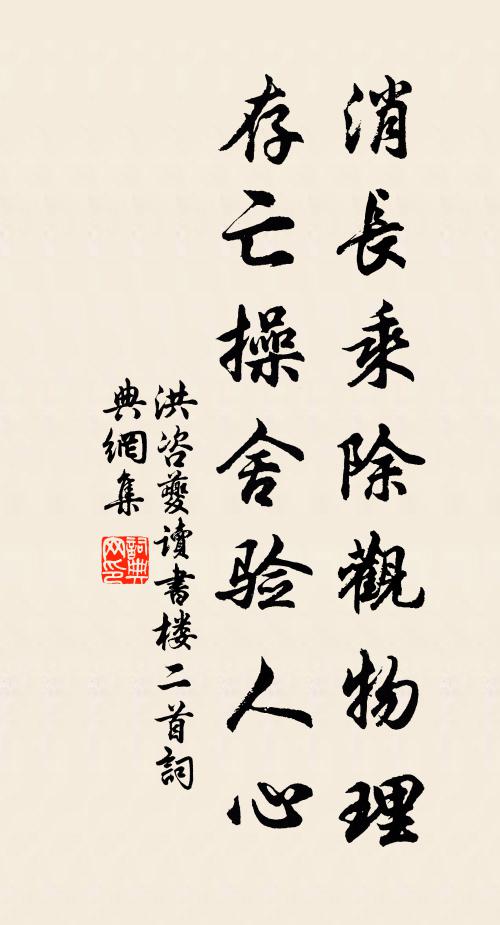 消長乘除觀物理
存亡操舍验人心
洪咨夔讀書楼二首詞
典網集
詞典网印